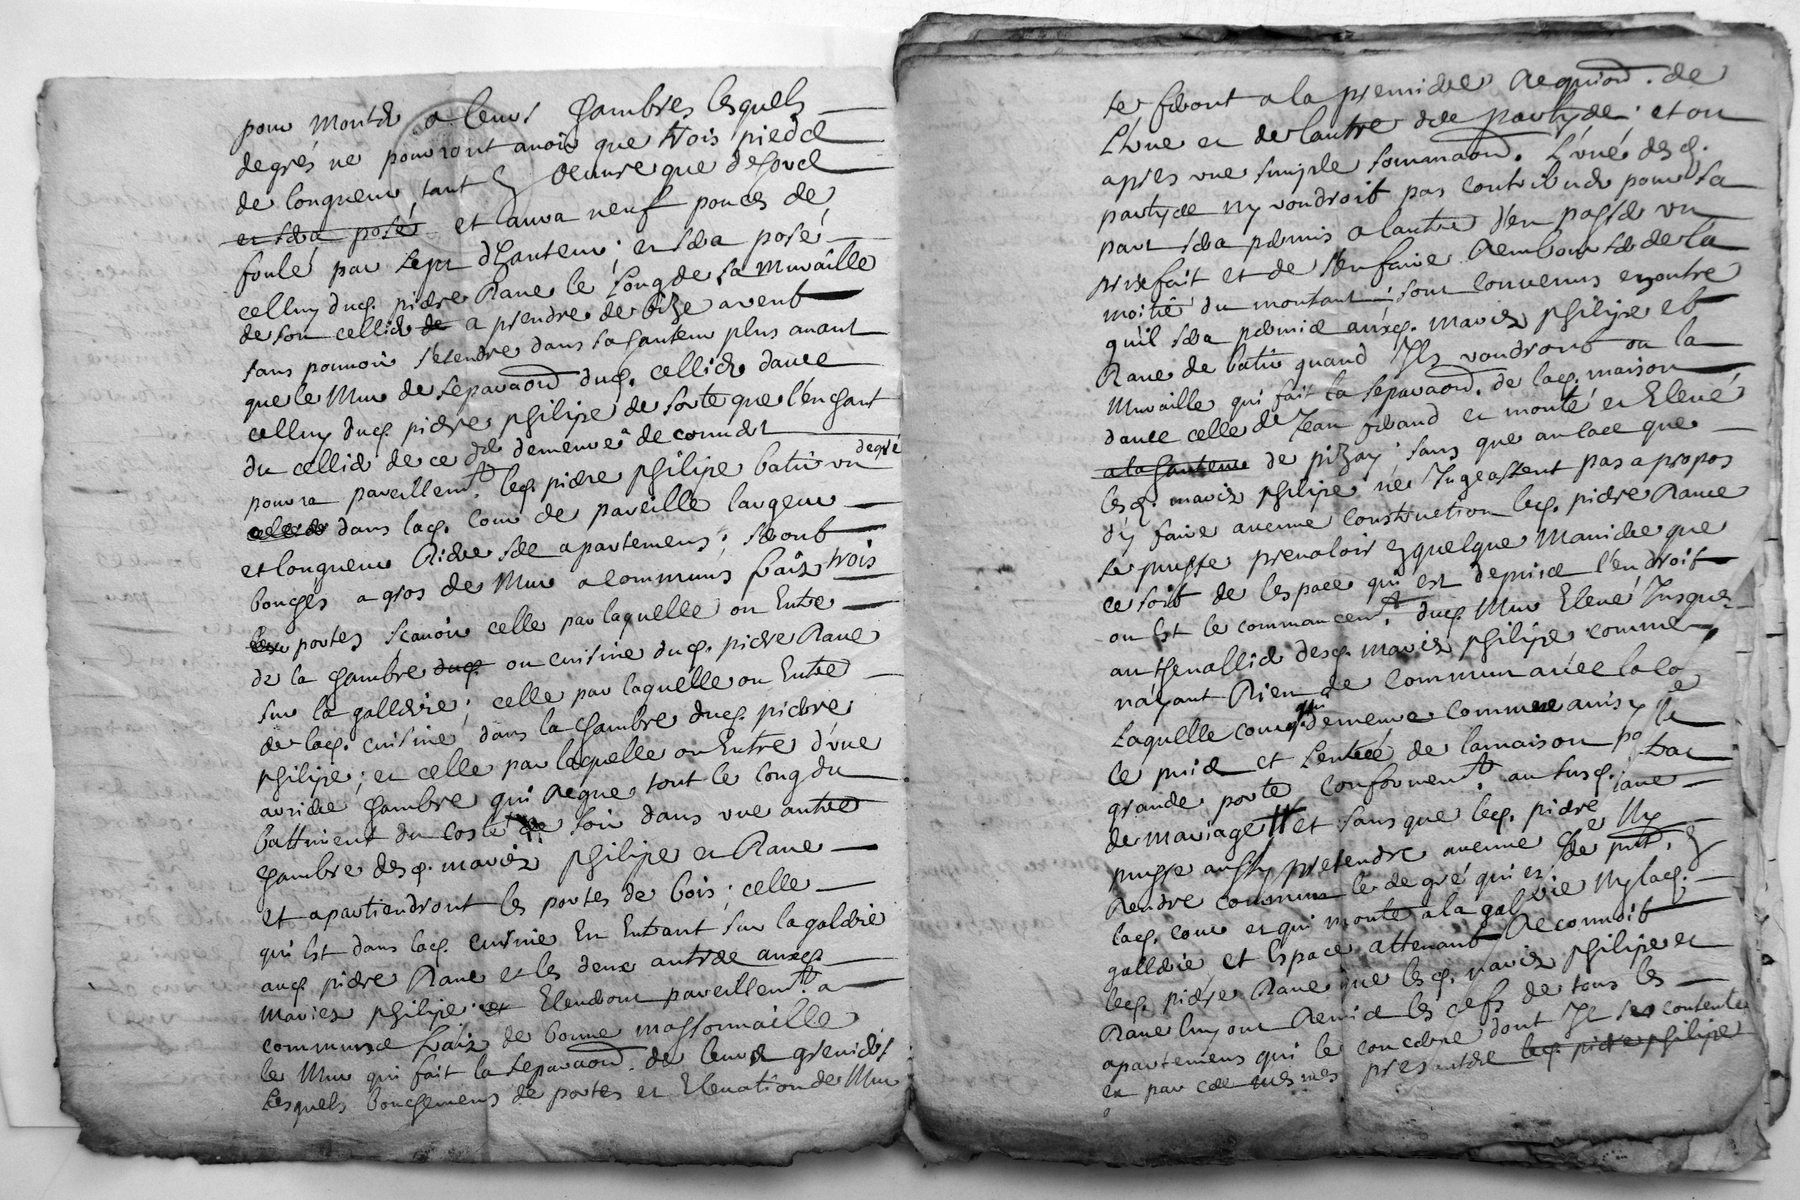 pour monter a leurs chambres lesquels
degrés ne pourront avoir que trois pieds
de longueur, tant œuvre que
et sera posé et aura neuf pouces de
foulé par sept d'hauteur, et sera posé
celluy dud. pierre Rane le long de sa muraille
de son cellier de a prendre de bize a vent
sans pouvoir s'etendre dans sa hauteur plus avant
que le mur de separaon dud. cellier davec
celluy dud. pierre philipe de sorte que l'enchant
du cellier de ce dit demeure a decouvert
pourra pareillemt led. pierre philipe batir un degré
dans lad. cour de pareille largeur
et longueur apartemens; seront
bouchés a gros de mur a communs fraix trois
portes scavoir celle par laquelle on Entre
de la chambre dud. ou cuisine dud. pierre Rane
sur la gallerie; celle par laquelle on Entre
de lad. cuisine dans la chambre dud. pierre
philipe; et celle par laquelle on Entre d'une
chambre qui Regne tout le long du
battiment du costé de soir dans une autre
chambre desd. mariés philipe et Rane
et apartiendront les portes de bois; celle
qui Est dans lad. cuisine En Entrant sur la galerie
aud. pierre Rane et les deux autres auxd.
mariés philipe. et Eleveront pareillemt a
communs fraix de bonne massonnaille
le mur qui fait la separaon. de leurs greniers
Lesquels bouchemens de portes et Elevation de mur
se feront a la premiere Requion. de
L'une et de lautre des partyes; et ou
apres une simple sommaon. L'une desd.
partyes ny voudroit pas contribuer pour sa
part sera permis a lautre d'en passer un
prixfait et de s'en faire Rembourser de la
moitié du montant; sont convenus enoutre
qu'il sera permis auxd. mariés philipe et
Rane de batir quand Ils voudront ou la
muraille qui fait la separaon. de lad. maison
davec celle de Jean feraud et monté et Elevé
a la hauteur de pizay; sans que au cas que
lesd. mariés philipe ne Jugeassent pas a propos
d'y faire aucune construction led. pierre Rane
se puisse prevaloir en quelque maniere que
ce soit de lespace qui est depuis l'endroit
ou Est le commancemt. dud. mur Elevé Jusques
au chenallier desd. mariés philipe comme
n'ayant Rien de commun avec la
Laquelle cour demeure commune ainsy que
le puid et Lentrée de la maison po la
grande porte conformemt. au susd.
de mariage et sans que led. pierre Rane
puisse aussy pretendre aucune chose Ny
Rendre commun le degré qui est
lad. cour et qui monte a la galerie Ny lad.
gallerie et Espace attenant Reconnoit
led. pierre Rane que lesd. mariés philipe et
Rane luy ont Remis les clefs de tous les
apartemens qui le concerne dont Il se contente
et par ces mesmes presentes led. pierre philipe